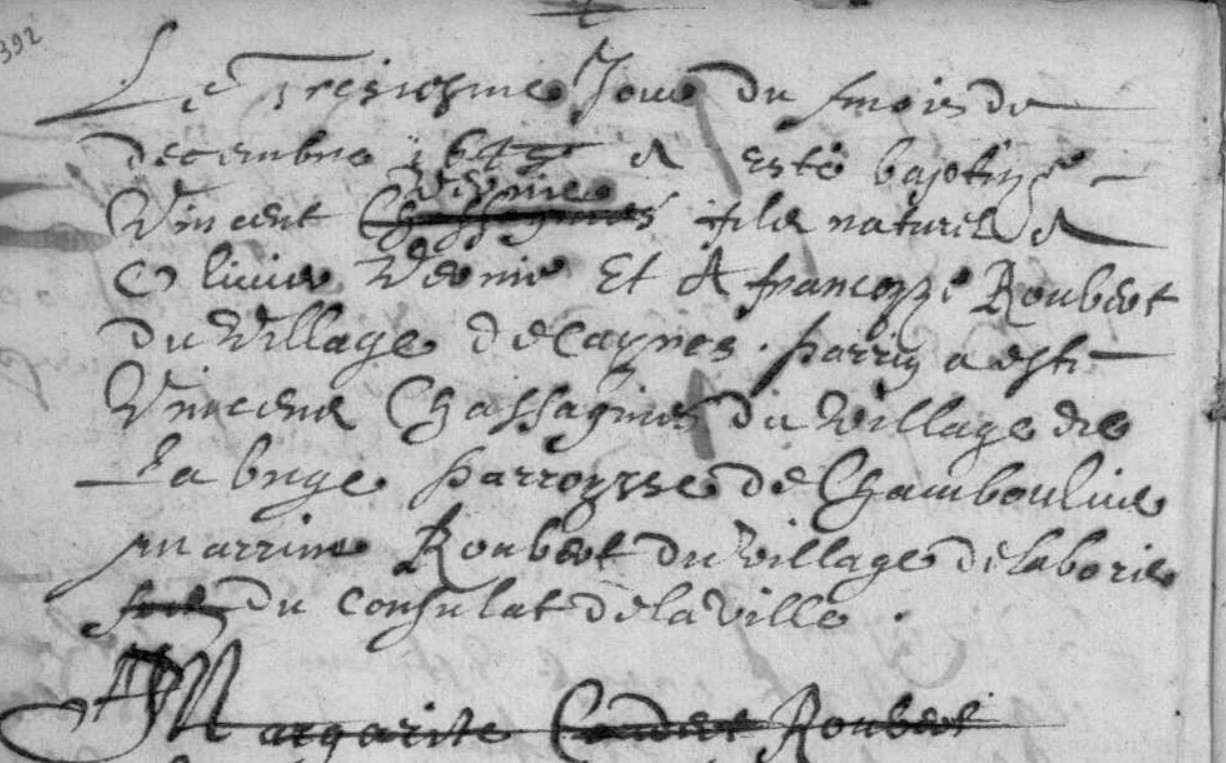 392
Le Treiziesme Jour du mois de
decembre a esté baptizé
Vernie
Vincent Chassagnes filz naturel a
Olivier Vernie Et A francoyze Roubert
du Village de Caynes . parrin a esté
Vincent Chassagnes du Village de
la brige parroysse de Chamboulive
marrine Roubert du Village de laborie
du Consulat de la Ville .
Margarite Roubert